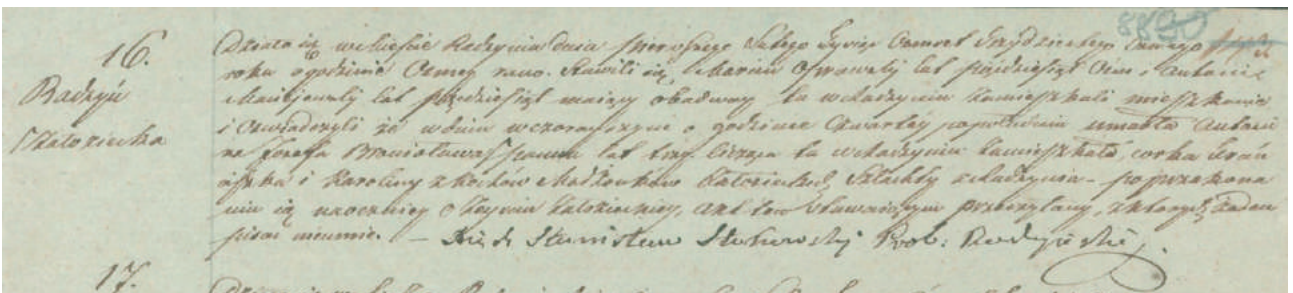 8890
16.
Radzyń
Załoziecka
Działo się w mieście Radzyniu dnia pierwszego Lutego Tysiąc Osmset Trzydziestego Osmego
roku o godzinie Osmey rano. Stawili się, Marcin lat pięćdziesiąt Osm i Antoni
lat pięćdziesiąt maiący obadway tu w Radzyniu zamieszkali
i Oswiadczyli że w dniu wczorayszym o godzinie Czwartey popołudniu umarła Antoni
na Jozefa Bronisława panna lat trzy licząca tu w Radzyniu zamieszkała, corka Fran
ciszka i Karoliny z Małżonków Załozieckich Szlachty z Radzynia - po przekona
niu się naocznie o Zeyściu Załozieckiey, Akt ten stawaiącym przeczytany, z których żaden
pisac nieumie. — Xiądz Stanisław Prob: Radzyński
17.